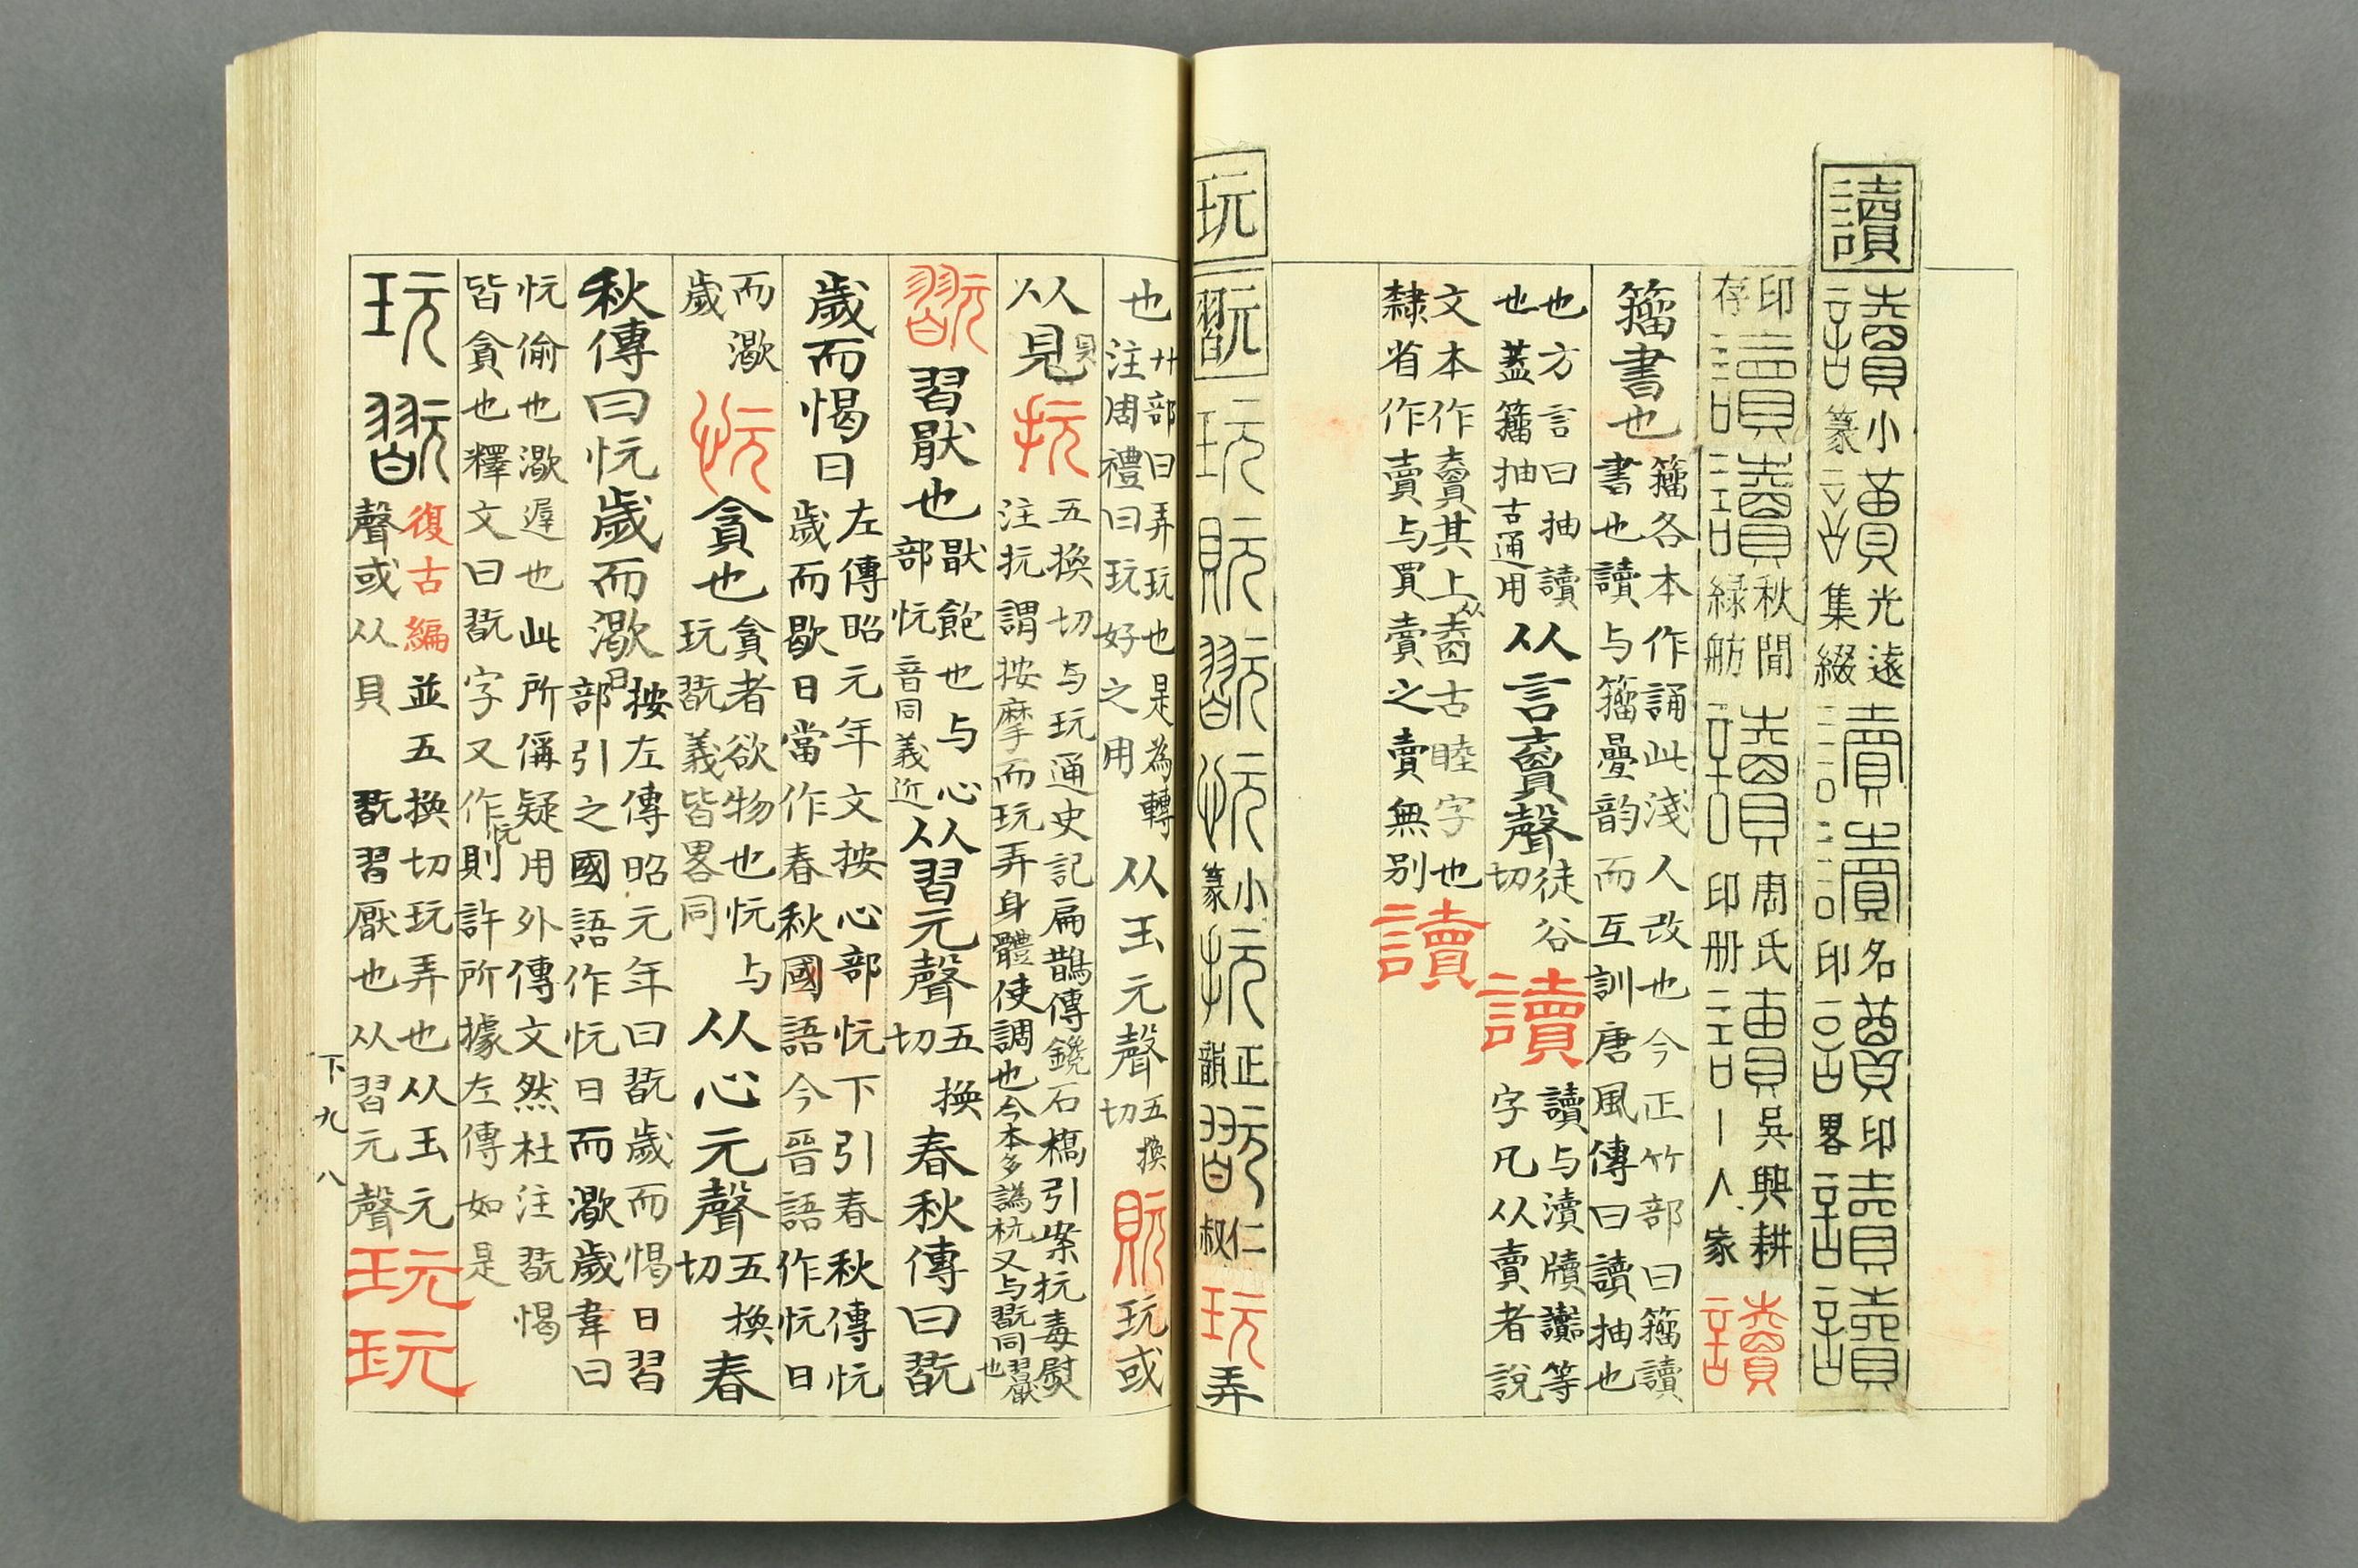 讀
讀 讀 小篆 讀 光遠集綴 讀 讀 名印 讀 印畧 讀 讀
印存 讀 讀 秋閒緑舫 讀 周氏印册 讀 吳興耕人家 讀
籀書也 籀各本作誦此淺人改也今正竹部曰籀讀
書也讀与籀疊韵而互訓唐風傳曰讀抽也
也方言曰抽讀
也蓋籀抽古通用 从言𧶠聲 徒谷切 讀 讀与瀆牘讟等
字凡从賣者說
文本作𧶠其上从𡍬古睦字也
隸省作賣与買賣之賣無别 讀
玩
翫
玩 貦 翫 忨 小篆 抏 正韻 翫 仁叔 玩 弄
也 廾部曰弄玩也是為轉
注周禮注曰玩好之用 从玉元聲 五換切 貦 玩或
从見 貝 抏 五換切与玩通史記扁鵲傳鑱石橋引案抏毒熨
注抏謂按摩而玩弄身體使調也今本多譌杬又与翫同習厭也
翫 習猒也 猒飽也与心部忨音同義近 从習元聲 五換切 春秋傳曰翫
歲而愒日 左傳昭元年文按心部忨下引春秋傳忨
歲而歇日當作春秋國語今晉語作忨日
而㵣
歲 忨 貪也 貪者欲物也忨与
玩翫義皆畧同 从心元聲 五換切 春
秋傳曰忨歲而㵣日 按左傳昭元年曰翫歲而愒日習
部引之國語作忨日而㵣歲韋曰
忨偷也㵣遲也此所偁疑用外傳文然杜注翫愒
皆貪也釋文曰翫字又作忨則許所據左傳如是
玩 翫 復古編 並五換切玩弄也从玉元
聲或从貝 翫習厭也从習元聲 玩 玩
下九八